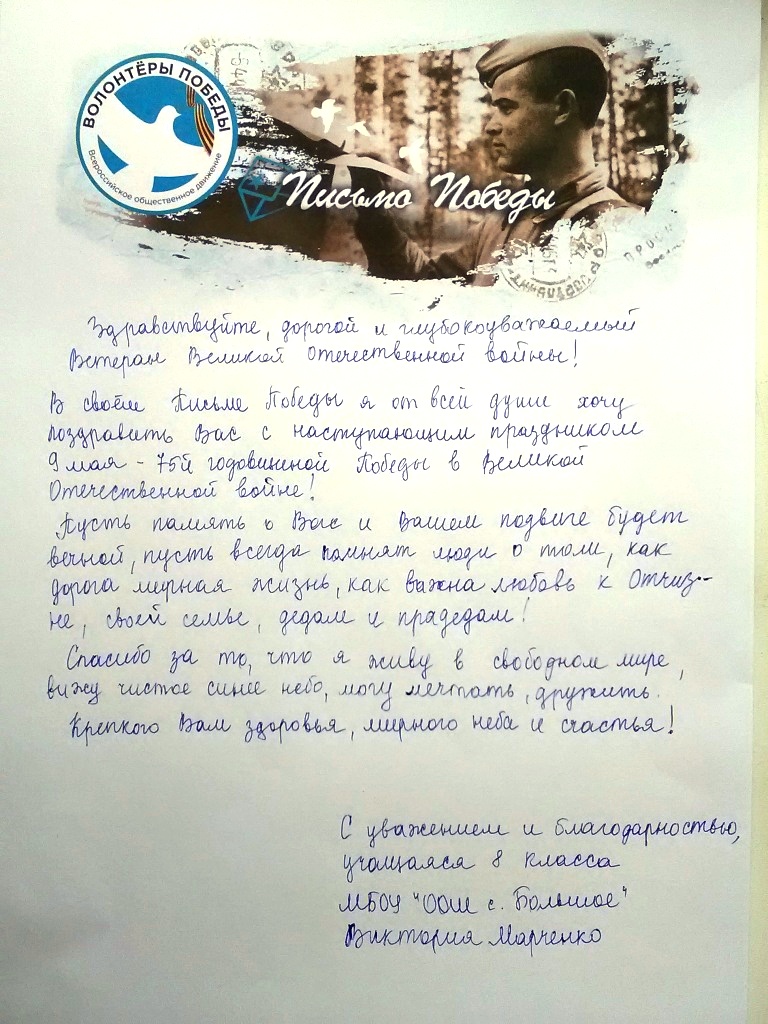 ВОЛОНТЁРЫ ПОБЕДЫ
Всероссийское общественное движение
Письмо Победы
Здравствуйте, дорогой и глубокоуважаемый
Ветеран Великой Отечественной войны!
В своём Письме Победы я от всей души хочу
поздравить Вас с наступающим праздником
9 мая - 75й годовщиной Победы в Великой
Отечественной войне!
Пусть память о Вас и Вашем подвиге будет
вечной, пусть всегда помнят люди о том, как
дорога мирная жизнь, как важна любовь к Отчиз-
не, своей семье, дедам и прадедам!
Спасибо за то, что я живу в свободном мире,
вижу чистое синее небо, могу мечтать, дружить.
Крепкого Вам здоровья, мирного неба и счастья!
С уважением и благодарностью,
учащаяся 8 класса
МБОУ "ООШ с. Большое"
Виктория Марченко